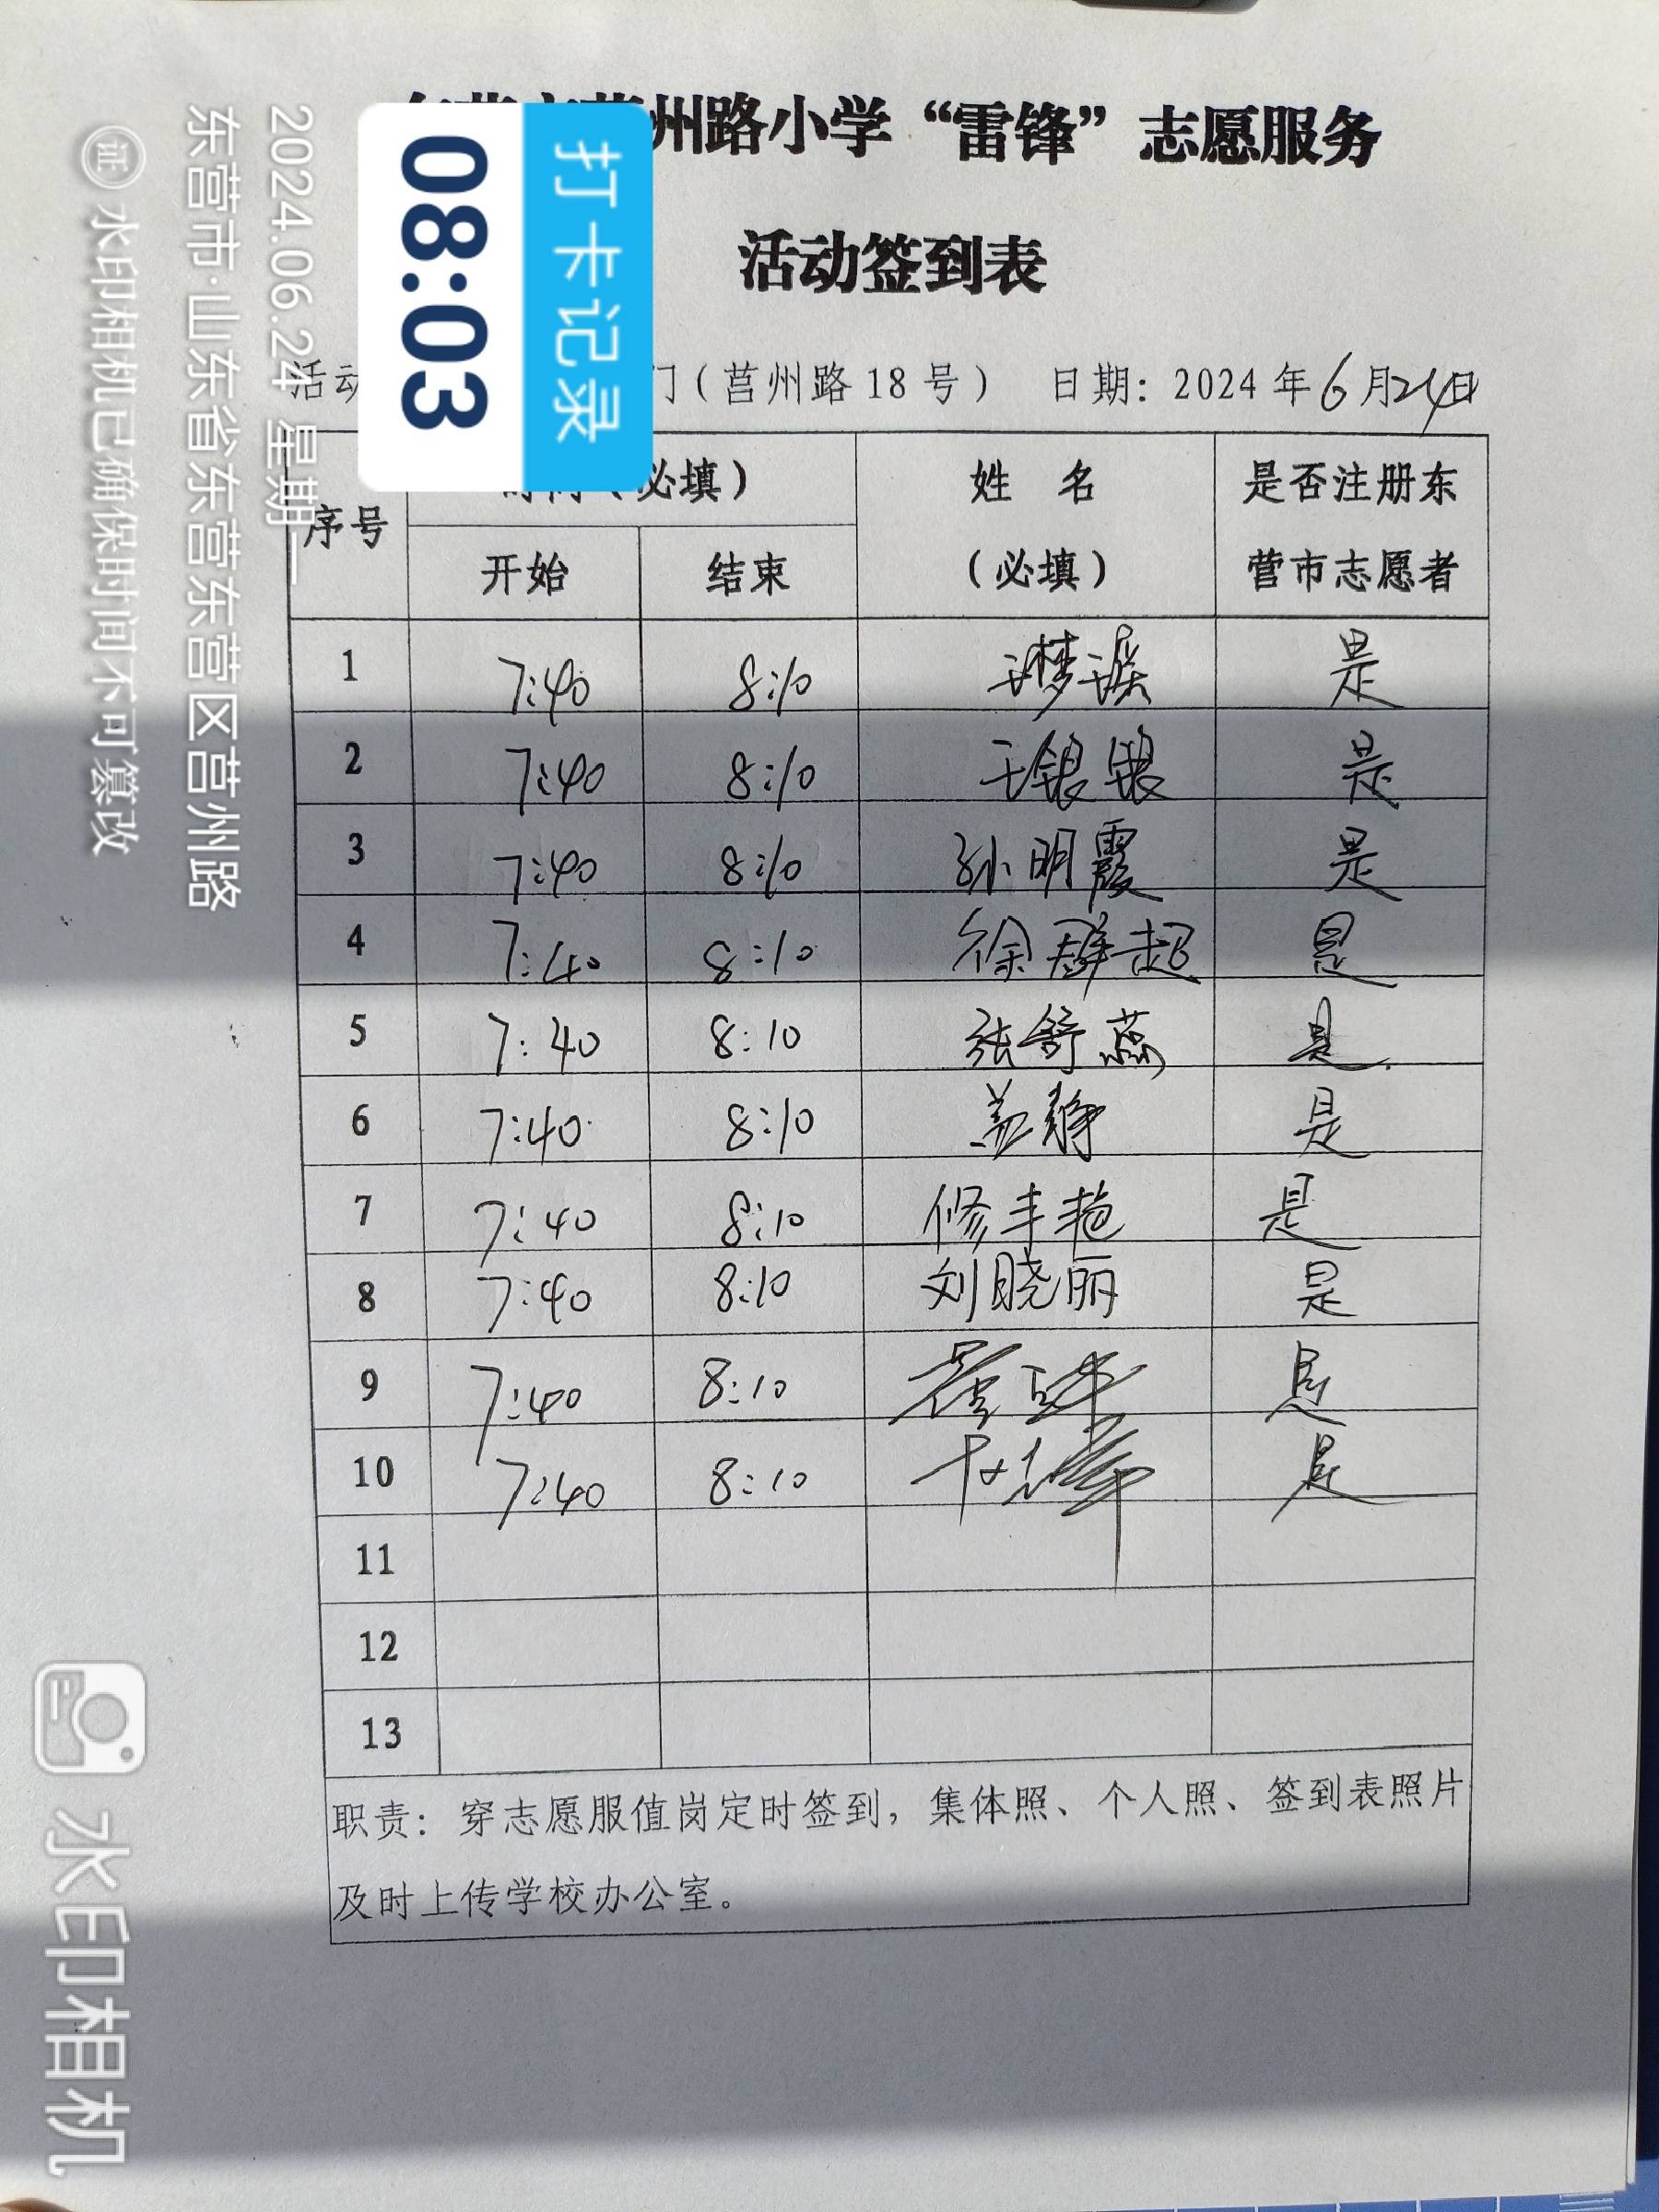 州路小学“雷锋”志愿服务
活动签到表
活动 门(莒州路18号) 日期: 2024年6月24日
序号 (必填) 姓 名 是否注册东
开始 结束 (必填) 营市志愿者
1 7:40 8:10 是
2 7:40 8:10 王银银 是
3 7:40 8:10 孙明霞 是
4 7:40 8:10 徐群超 是
5 7:40 8:10 张舒燕 是
6 7:40 8:10 盖静 是
7 7:40 8:10 修丰艳 是
8 7:40 8:10 刘晓丽 是
9 7:40 8:10 是
10 7:40 8:10 是
11
12
13
职责: 穿志愿服值岗定时签到, 集体照、个人照、签到表照片
及时上传学校办公室。
打卡记录
08:03
2024.06.24 星期一
东营市·山东省东营东营区莒州路
证 水印相机已确保时间不可篡改
水印相机